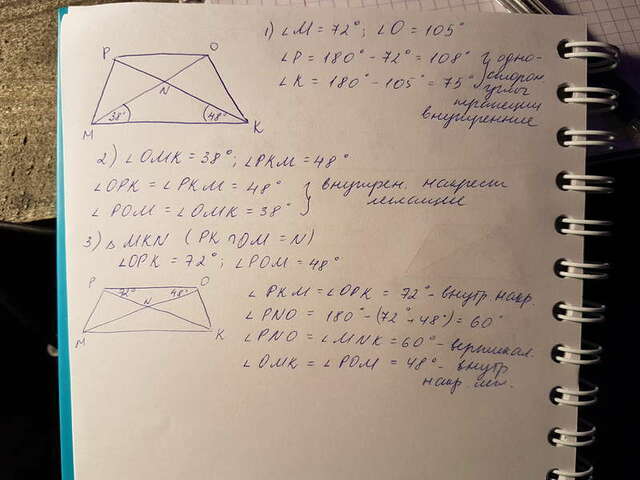 1) ∠M = 72°; ∠O = 105°
∠P = 180° - 72° = 108° } одно-
∠K = 180° - 105° = 75°
внутренние
M P O K N 38° 48°
2) ∠OMK = 38°; ∠PKM = 48°
∠OPK = ∠PKM = 48° } внутрен. накрест
∠POM = ∠OMK = 38° лежащие
3) △ MKN (PK ∩ OM = N)
∠OPK = 72°; ∠POM = 48°
M P O K N 72° 48°
∠PKM = ∠OPK = 72° внутр накр
∠PNO = 180° - (72° + 48°) = 60°
∠PNO = ∠MNK = 60° - вертикал.
∠OMK = ∠POM = 48° внутр
накр леж.